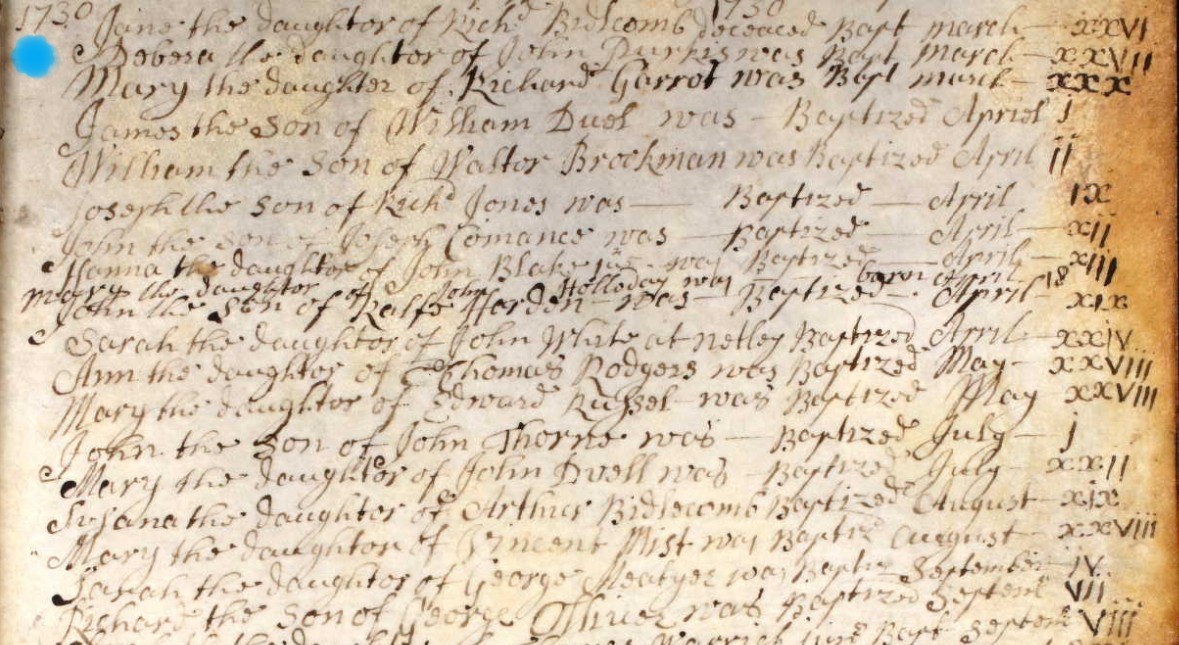 1730 1730
Jane the daughter of Richd Bidlcomb deceaced Bapt march XXVI
Debera the daughtor of John Durkis was Bapt March XXVII
Mary the daughter of Richard Garrot was Bapt march XXX
James the Son of William Duel was Baptized Apriel j
William the Son of Waltor Brockman was Baptized April ii
Joseph the Son of Richd Jones was Baptized April IX
John the son of Joseph Comance was Baptized April XII
Hanna the daughtor of John Blake was Baptized April XIII
mary the daughtor of John Holloday was born April 18
John the Son of Ralfe Harden was Baptized April XIX
Sarah the daughtor of John White at netley Baptized April XXIV
Ann the daughtor of Thomas Rodgers was Baptized May XXVIII
Mary the daughtor of Edward Russel was Baptized May XXVIII
John the Son of John Thorne was Baptized July j
Mary the daughtor of John Dwell was Baptized July XXII
Susana the daughtor of Arthur Bidlecomb Baptized August XIX
Mary the daughtor of Vincent Mist was Baptiz August XXVIII
Sarah the daughtor of George was Baptiz September IV
Richard the Son of George Oliver was Baptized Septem VII
the daughter Warrick junr Bapt Septem VIII